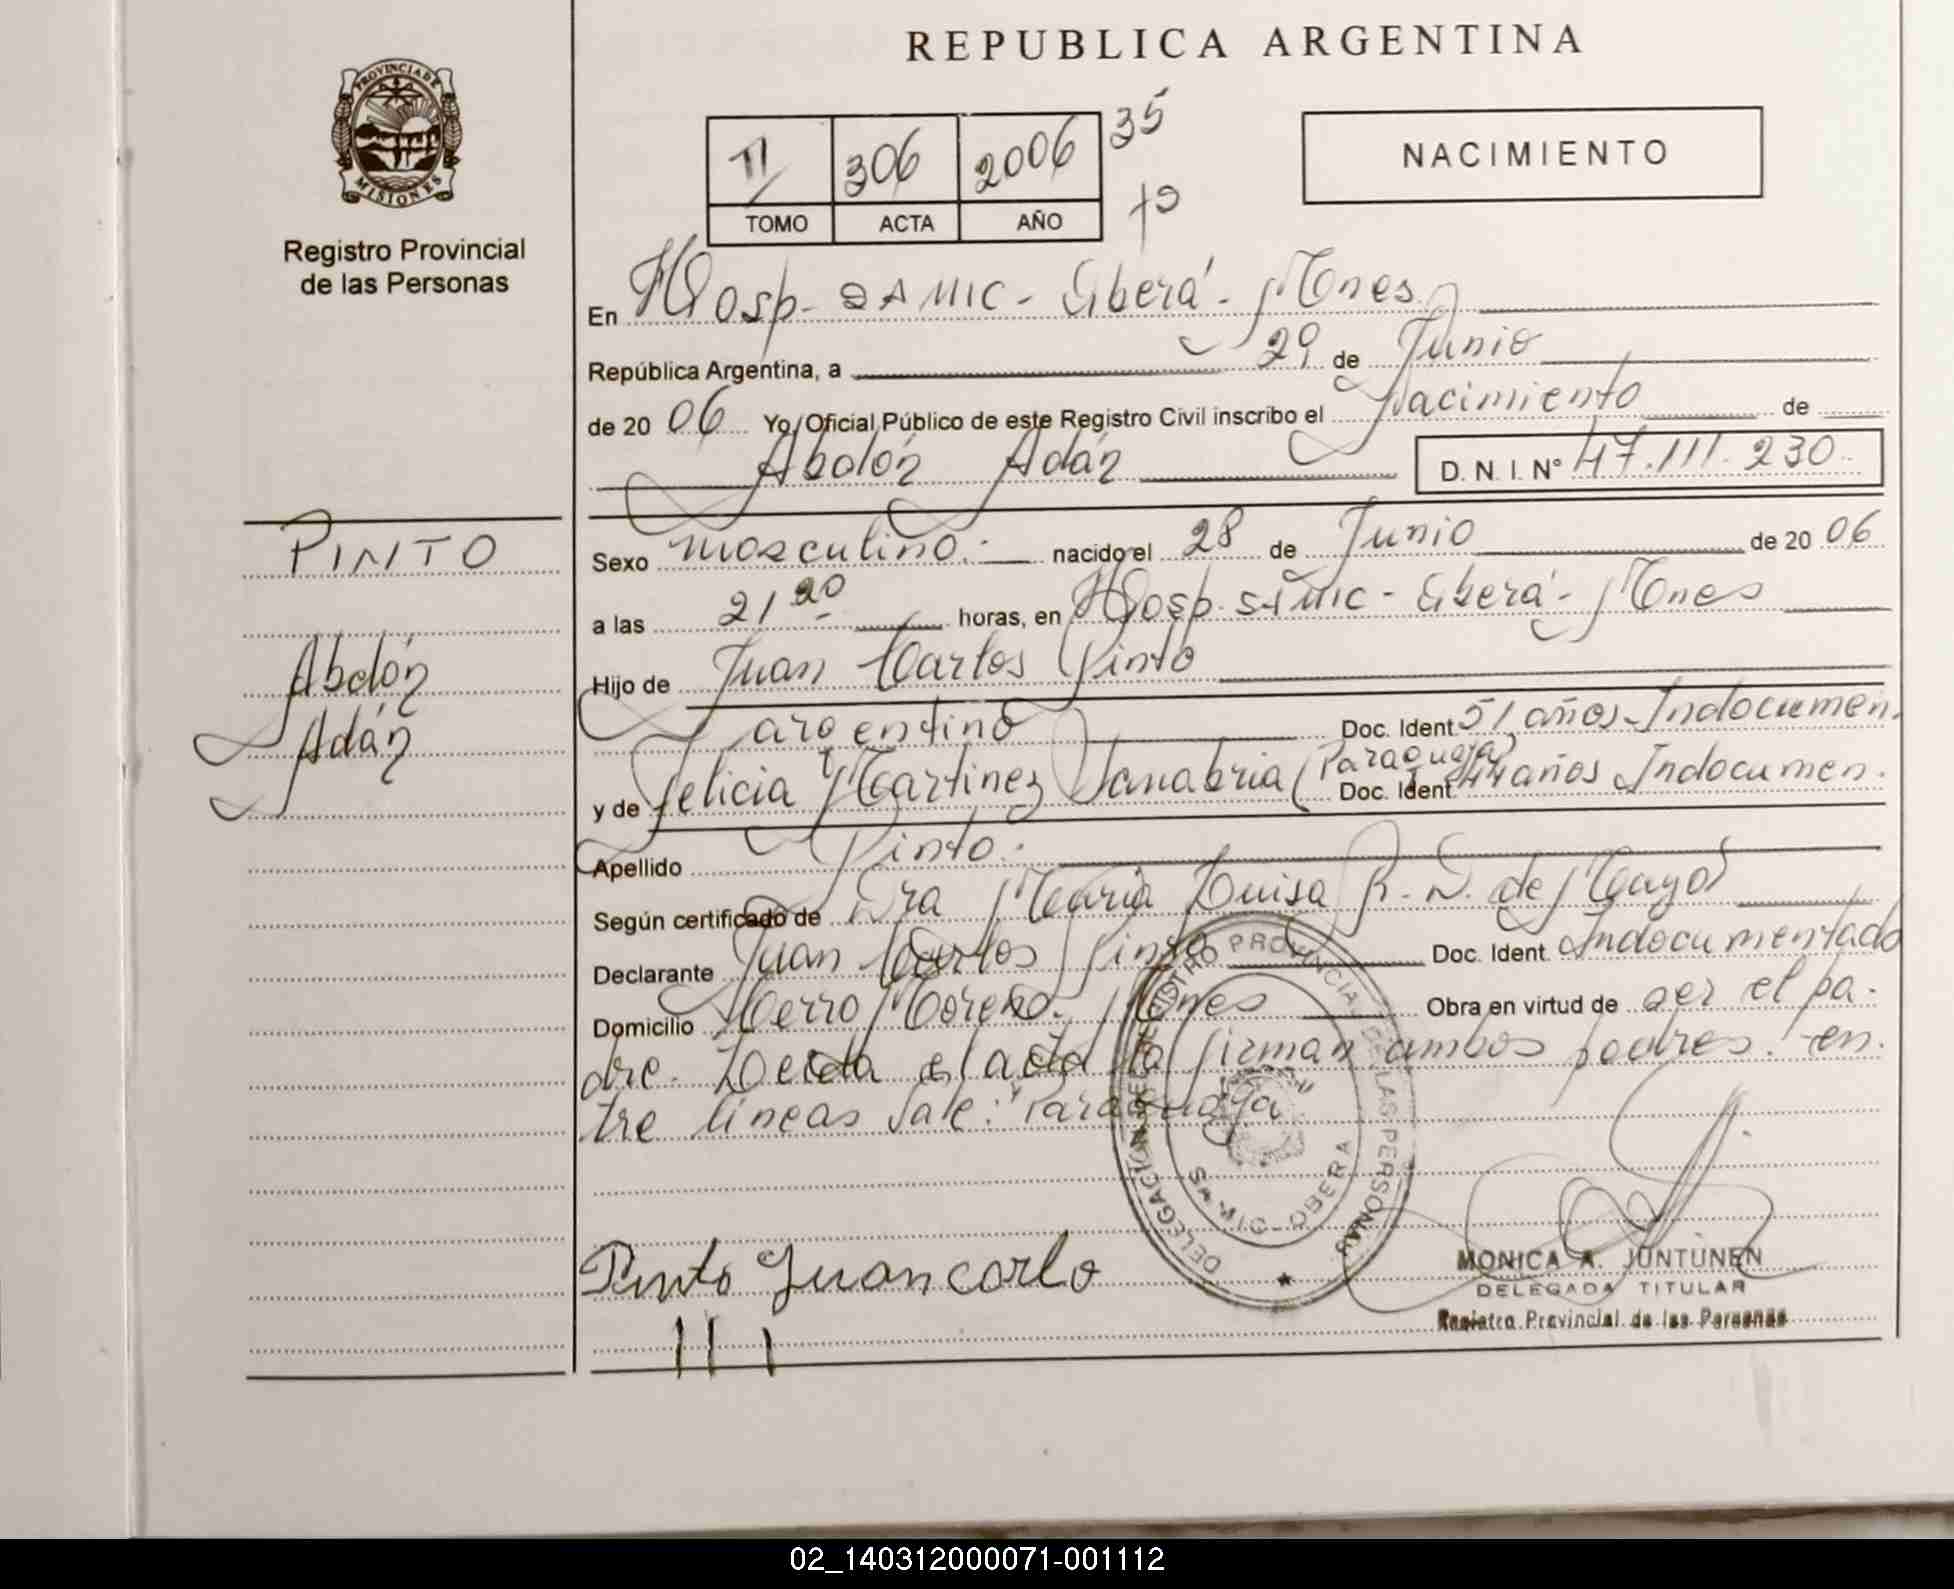 REPUBLICA ARGENTINA
PROVINCIA DE
MISIONES
Registro Provincial
de las Personas
II 306 2006 35
TOMO ACTA AÑO
NACIMIENTO
En Hosp- SAMIC- Oberá- Mnes
República Argentina, a 29 de Junio
de 2006 Yo, Oficial Público de este Registro Civil inscribo el Nacimiento de
Abdón Adán D. N. I. N° 47.111.230
PINTO
Abdón
Adán
Sexo masculino.- nacido el 28 de Junio de 2006
a las 21 20 horas, en Hosp. SAMIC- Oberá- Mnes
Hijo de Juan Carlos Pinto
argentino Doc. Ident 51 años- Indocumen.
y de Felicia Martinez Sanabria (Paraguaya) Doc. Ident. 44 años Indocumen.
Apellido Pinto.
Según certificado de Dra Maria Luisa R. D. de Mayol
Declarante Juan Carlos Pinto Doc. Ident. Indocumentado
Domicilio Cerro Moreno. Mnes Obra en virtud de ser el pa-
dre. Leida el acta la firman ambos padres. en-
tre líneas vale: "Paraguaya"
DELEGACION DE REGISTRO PROVINCIAL DE LAS PERSONAS
SAMIC - OBERA
Pinto Juan carlo
MONICA A. JUNTUNEN
DELEGADA TITULAR
Registro Provincial de las Personas
02_140312000071-001112